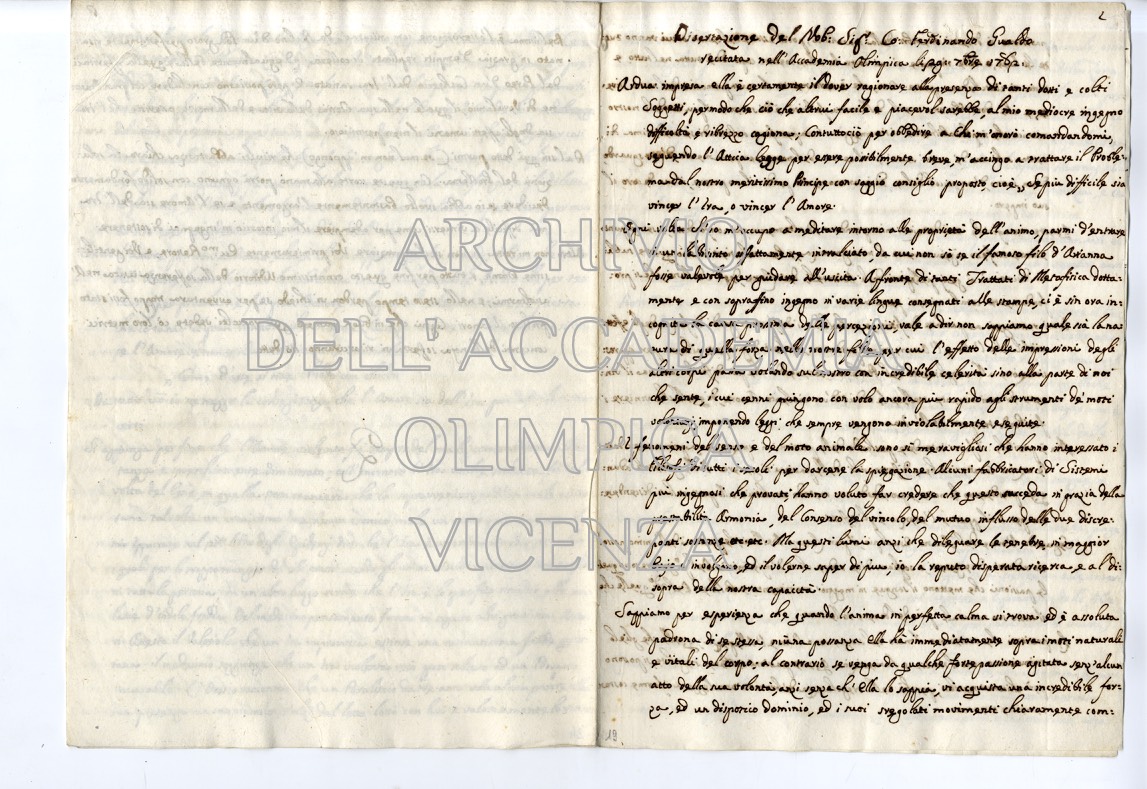 2
Disertazione del Nob: Sigr. Co: Ferdinando Gualdo
recitata nell'Accademia Olimpica li 7bre 1762.
Ardua impresa ella è certamente il dover ragionare alla presenza di tanti dotti e colti
Soggetti, per modo che ciò che altrui facile e piacevol sarebbe, al mio mediocre ingegno
difficoltà e ribrezzo cagiona. Contuttociò per obbedire a chi m'onorò comandandomi,
seguendo l'Attica legge per essere possibilmente breve m'accingo a trattare il Proble-
ma dal nostro meritissimo Principe con saggio consiglio proposto cioè, Se più difficile sia
vincer l'Ira, o vincer l'Amore.
Ogni volta ch'io m'occupo a meditare intorno alle proprietà dell'animo, parmi d'entrare
in un labirinto sì fattamente intralciato da cui non sò se il famoso filo d'Arianna
fosse valevole per guidare all'uscita. A fronte di tanti Trattati di Metafisica dotta-
mente e con sopraffino ingegno in varie lingue consegnati alle stampe, ci è sin ora in-
cognita la causa prossima delle percezioni, vale a dir non sappiamo quale sia la na
tura di quella forza nelle nostre fibre per cui l'effetto delle impressioni degli
altri corpi passa volando sul nostro con incredibile celerità sino alla parte di noi
che sente, i cui cenni giungono con volo ancora più rapido agli strumenti de' moti
volontarj imponendo leggi, che sempre vengono inviolabilmente eseguite.
I fenomeni del senso e del moto animale sono sì meravigliosi che hanno interessato i
Filosofi di tutti i secoli per darcene la spiegazione. Alcuni fabbricatori di Sistemi
più ingegnosi che provati hanno voluto far credere che questo succeda in grazia della
prestabilita Armonia, del Consenso del vincolo, del mutuo influsso delle due discre-
panti sostanze etc. etc. Ma questi lumi anzi che dileguare le tenebre, in maggior
buio c'involgono, ed il volerne saper di più, io la reputo disperata ricerca e al di-
sopra della nostra capacità.
Sappiamo per esperienza che quando l'anima in perfetta calma si trova ed è assoluta
padrona di se stessa, niuna possanza Ella hà immediatamente sopra i moti naturali
e vitali del corpo, al contrario se venga da qualche forte passione agitata senz'alcun
atto della sua volontà, anzi senza ch'Ella lo sappia, vi acquista una incredibile for-
za, ed un dispotico dominio, ed i suoi sregolati movimenti chiaramente com-
19
ARCHIVIO
DELL'ACCADEMIA
OLIMPICA
VICENZA